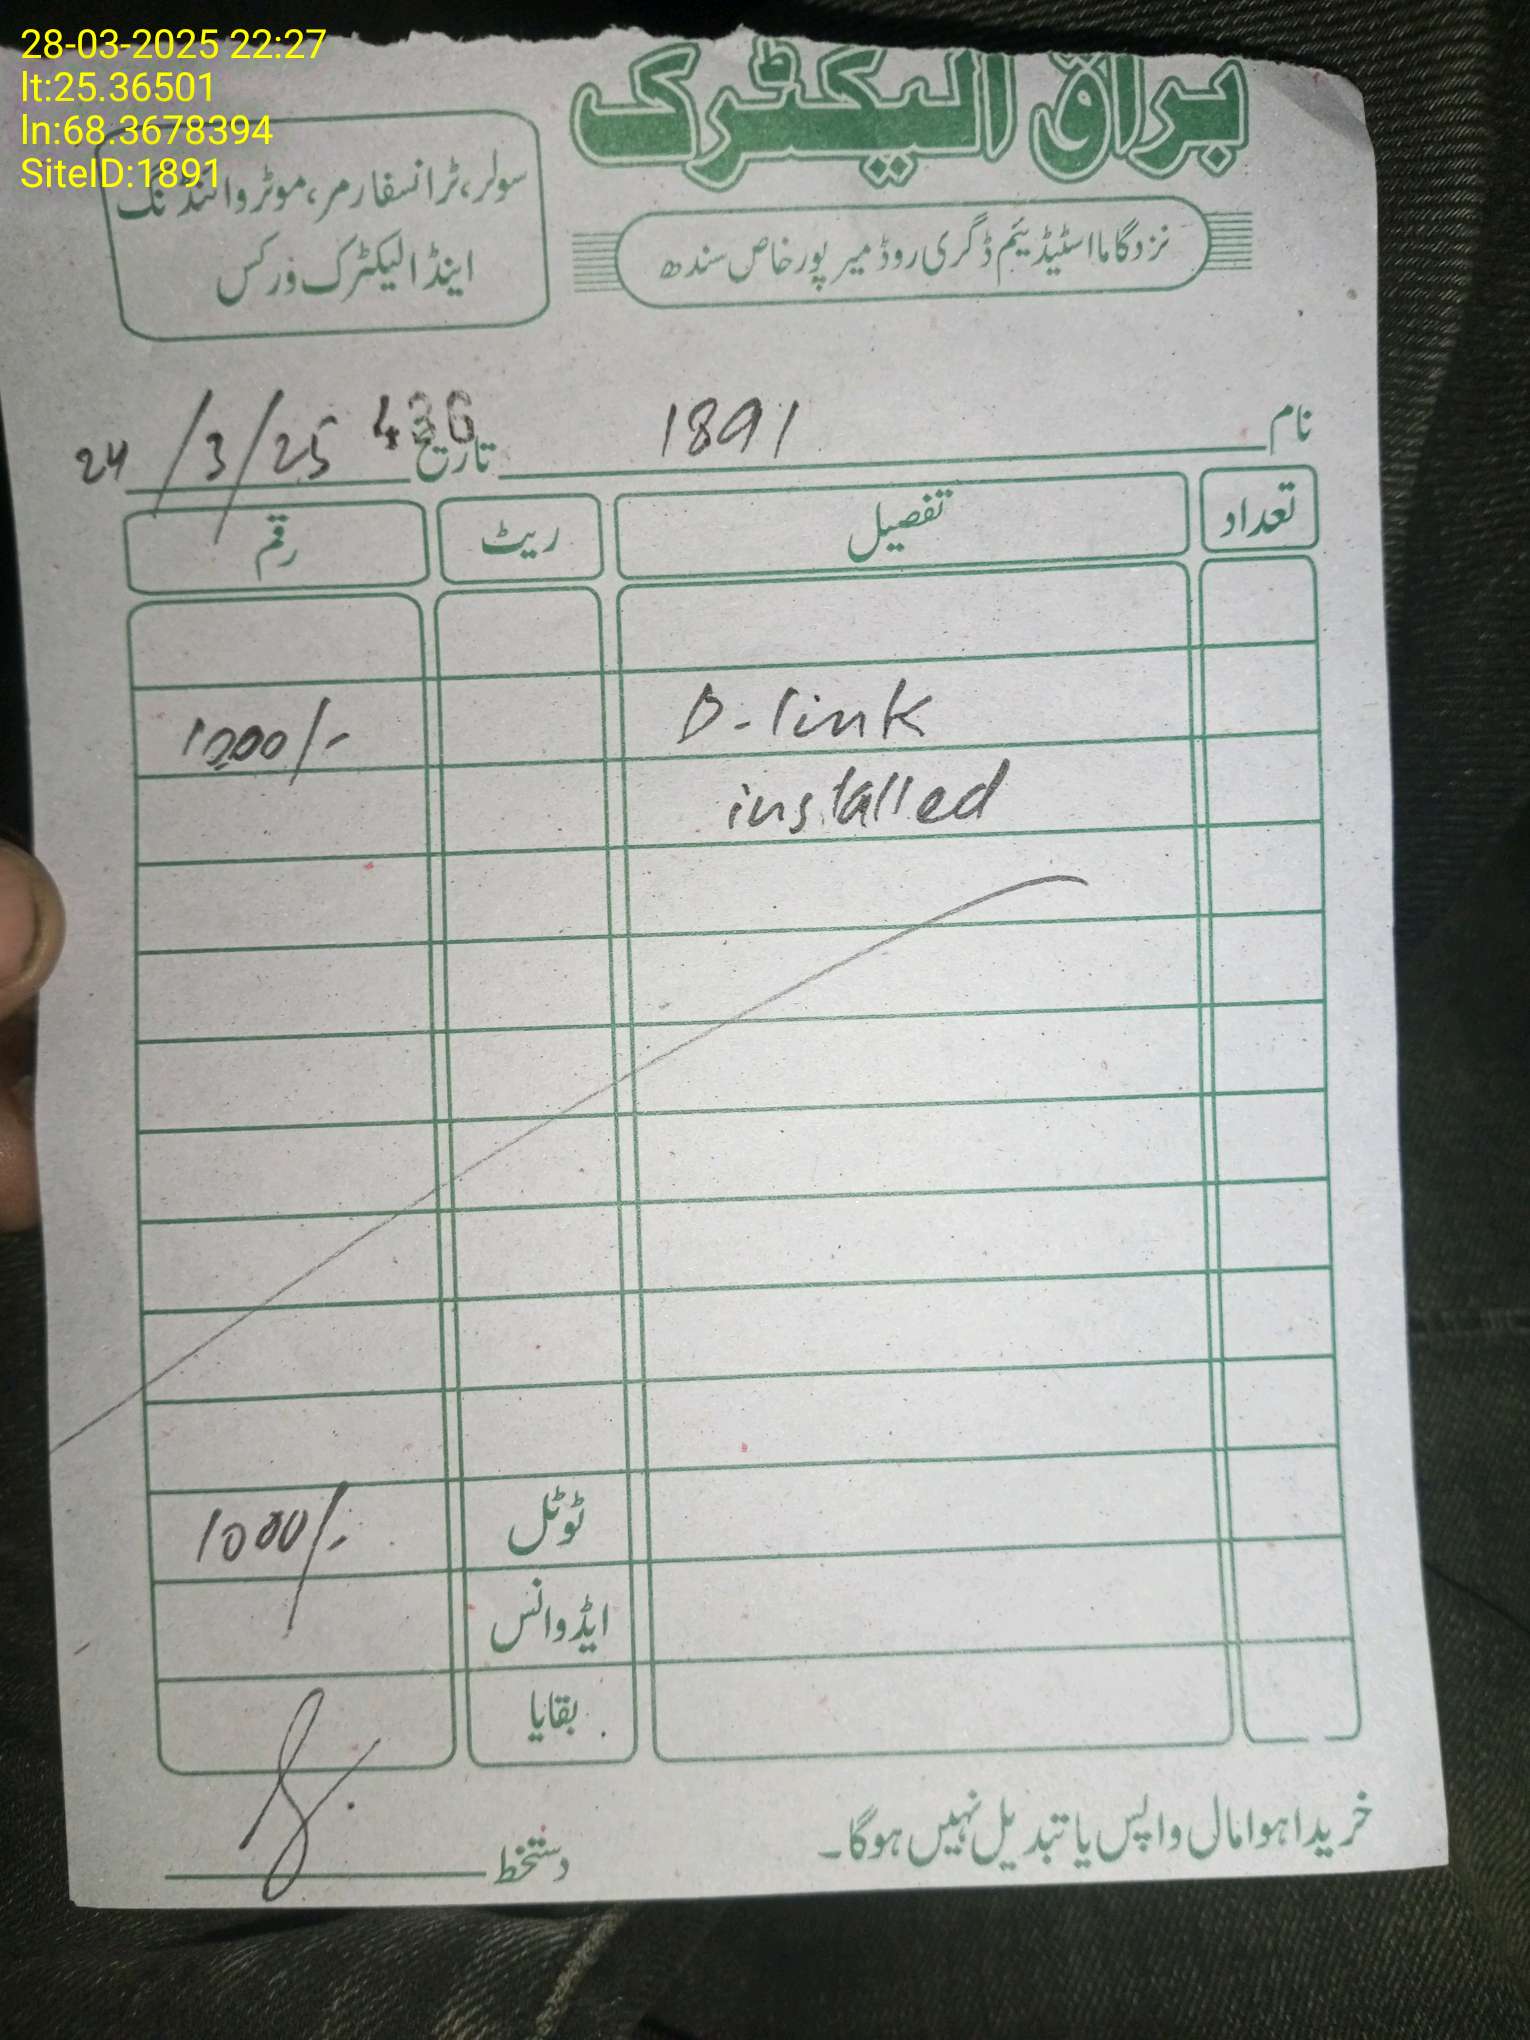 28-03-2025 22:27
lt:25.36501
ln:68.3678394
SiteID:1891
براق الیکٹرک
سولر، ٹرانسفارمر، موٹر وائنڈنگ
اینڈ الیکٹرک ورکس
نزد گاما اسٹیڈیئم ڈگری روڈ میر پور خاص سندھ
436
نام 1891 تاریخ 24/3/25
تعداد تفصیل ریٹ رقم
D-link 1000/-
installed
ٹوٹل 1000/-
ایڈوانس
بقایا
خریدا ہوا مال واپس یا تبدیل نہیں ہوگا۔
دستخط